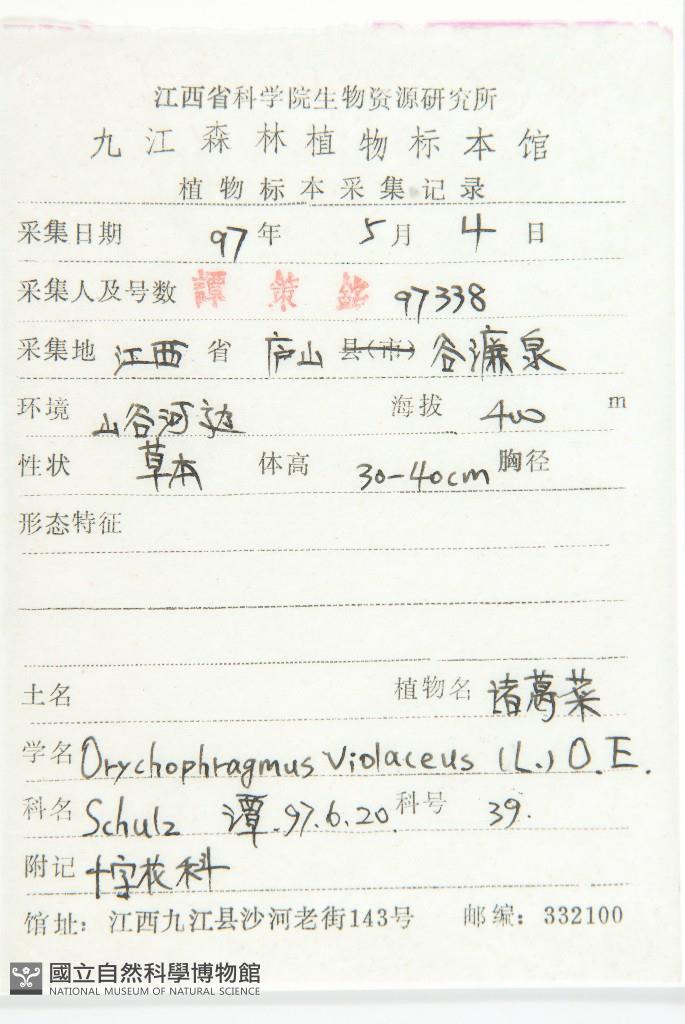 江西省科学院生物资源研究所
九江森林植物标本馆
植物标本采集记录
采集日期 97年 5月 4日
采集人及号数 譚策銘 97338
采集地 江西 省 庐山 县(市) 谷濂泉
环境 山谷河边 海拔 400 m
性状 草本 体高 30-40cm 胸径
形态特征
土名 植物名 诸葛菜
学名 Orychophragmus violaceus (L.) O.E.
科名 Schulz 潭.97.6.20. 科号 39.
附记 十字花科
馆址:江西九江县沙河老街143号 邮编:332100
國立自然科學博物館
NATIONAL MUSEUM OF NATURAL SCIENCE